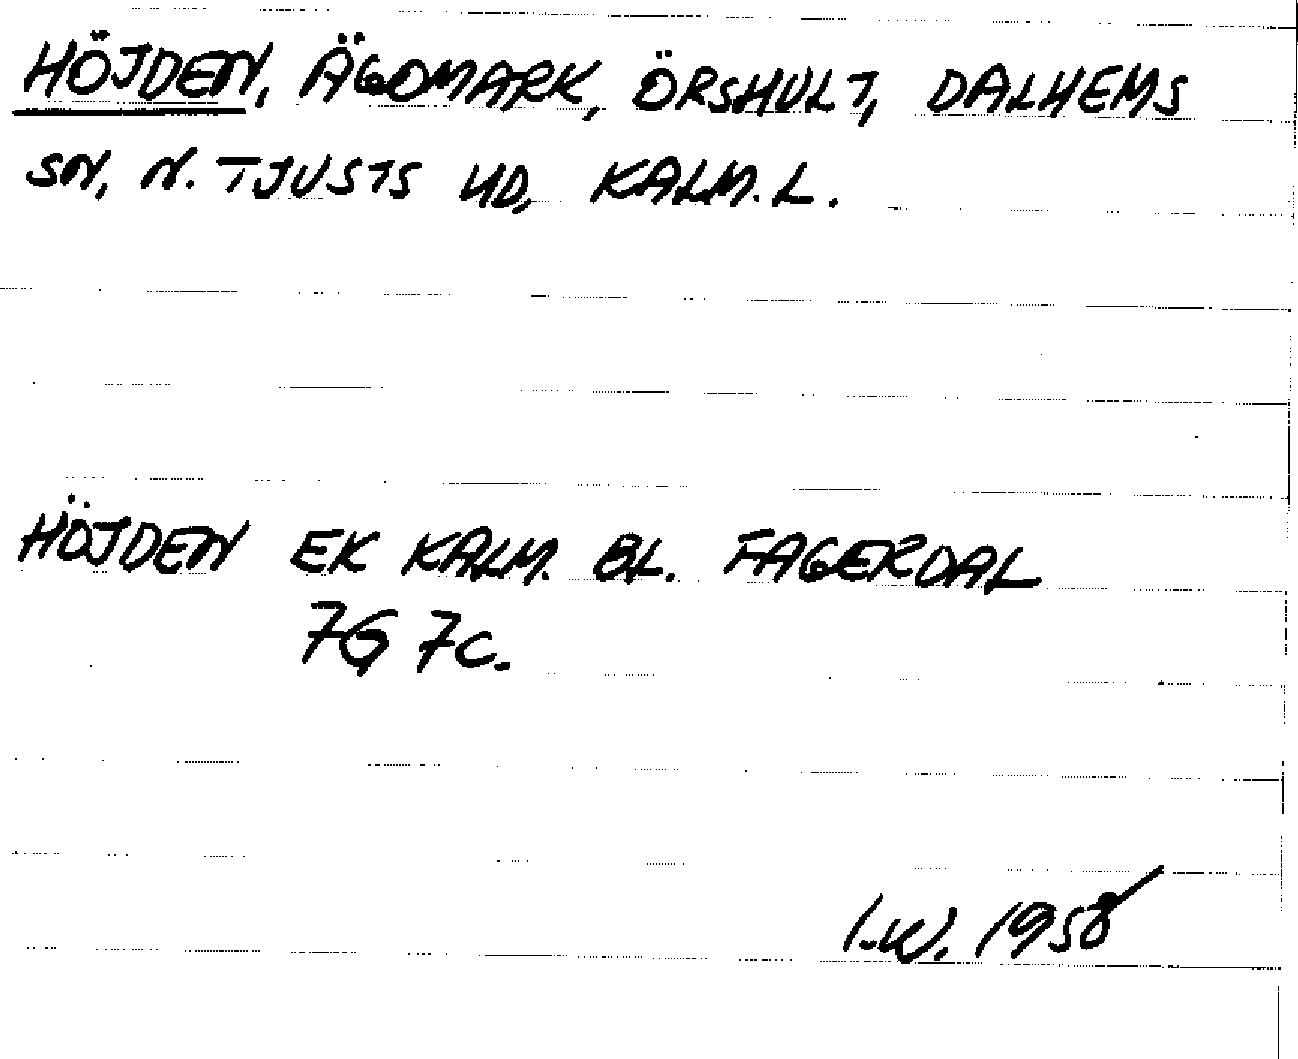 HÖJDEN, ÄGOMARK, ÖRSHULT, DALHEMS
SN, N. TJUSTS HD, KALM. L.
HÖJDEN EK KALM. BL. FAGERDAL
7G 7C.
I.W. 1958